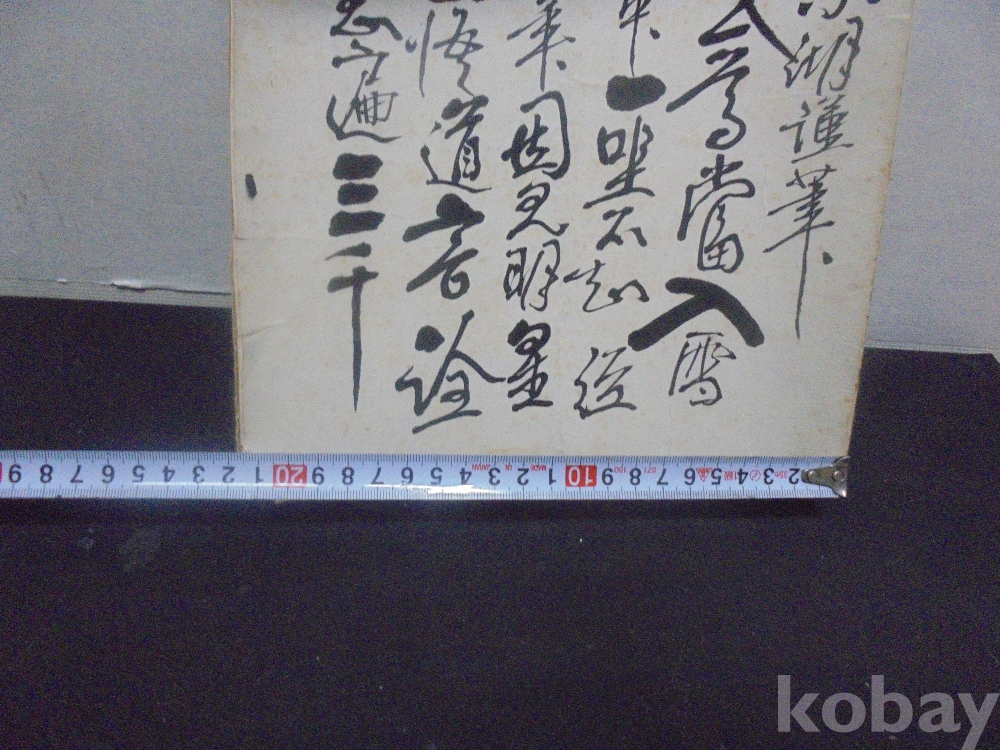 湖謹筆
尊當入雪
一坐不知經
年因見明星
悟道言詮
息遍三千
2 3 4 5 6 7 8 9 10 1 2 3 4 5 6 7 8 9 20 1 2 3 4 5 6 7 8 9
MADE IN JAPAN
kobay